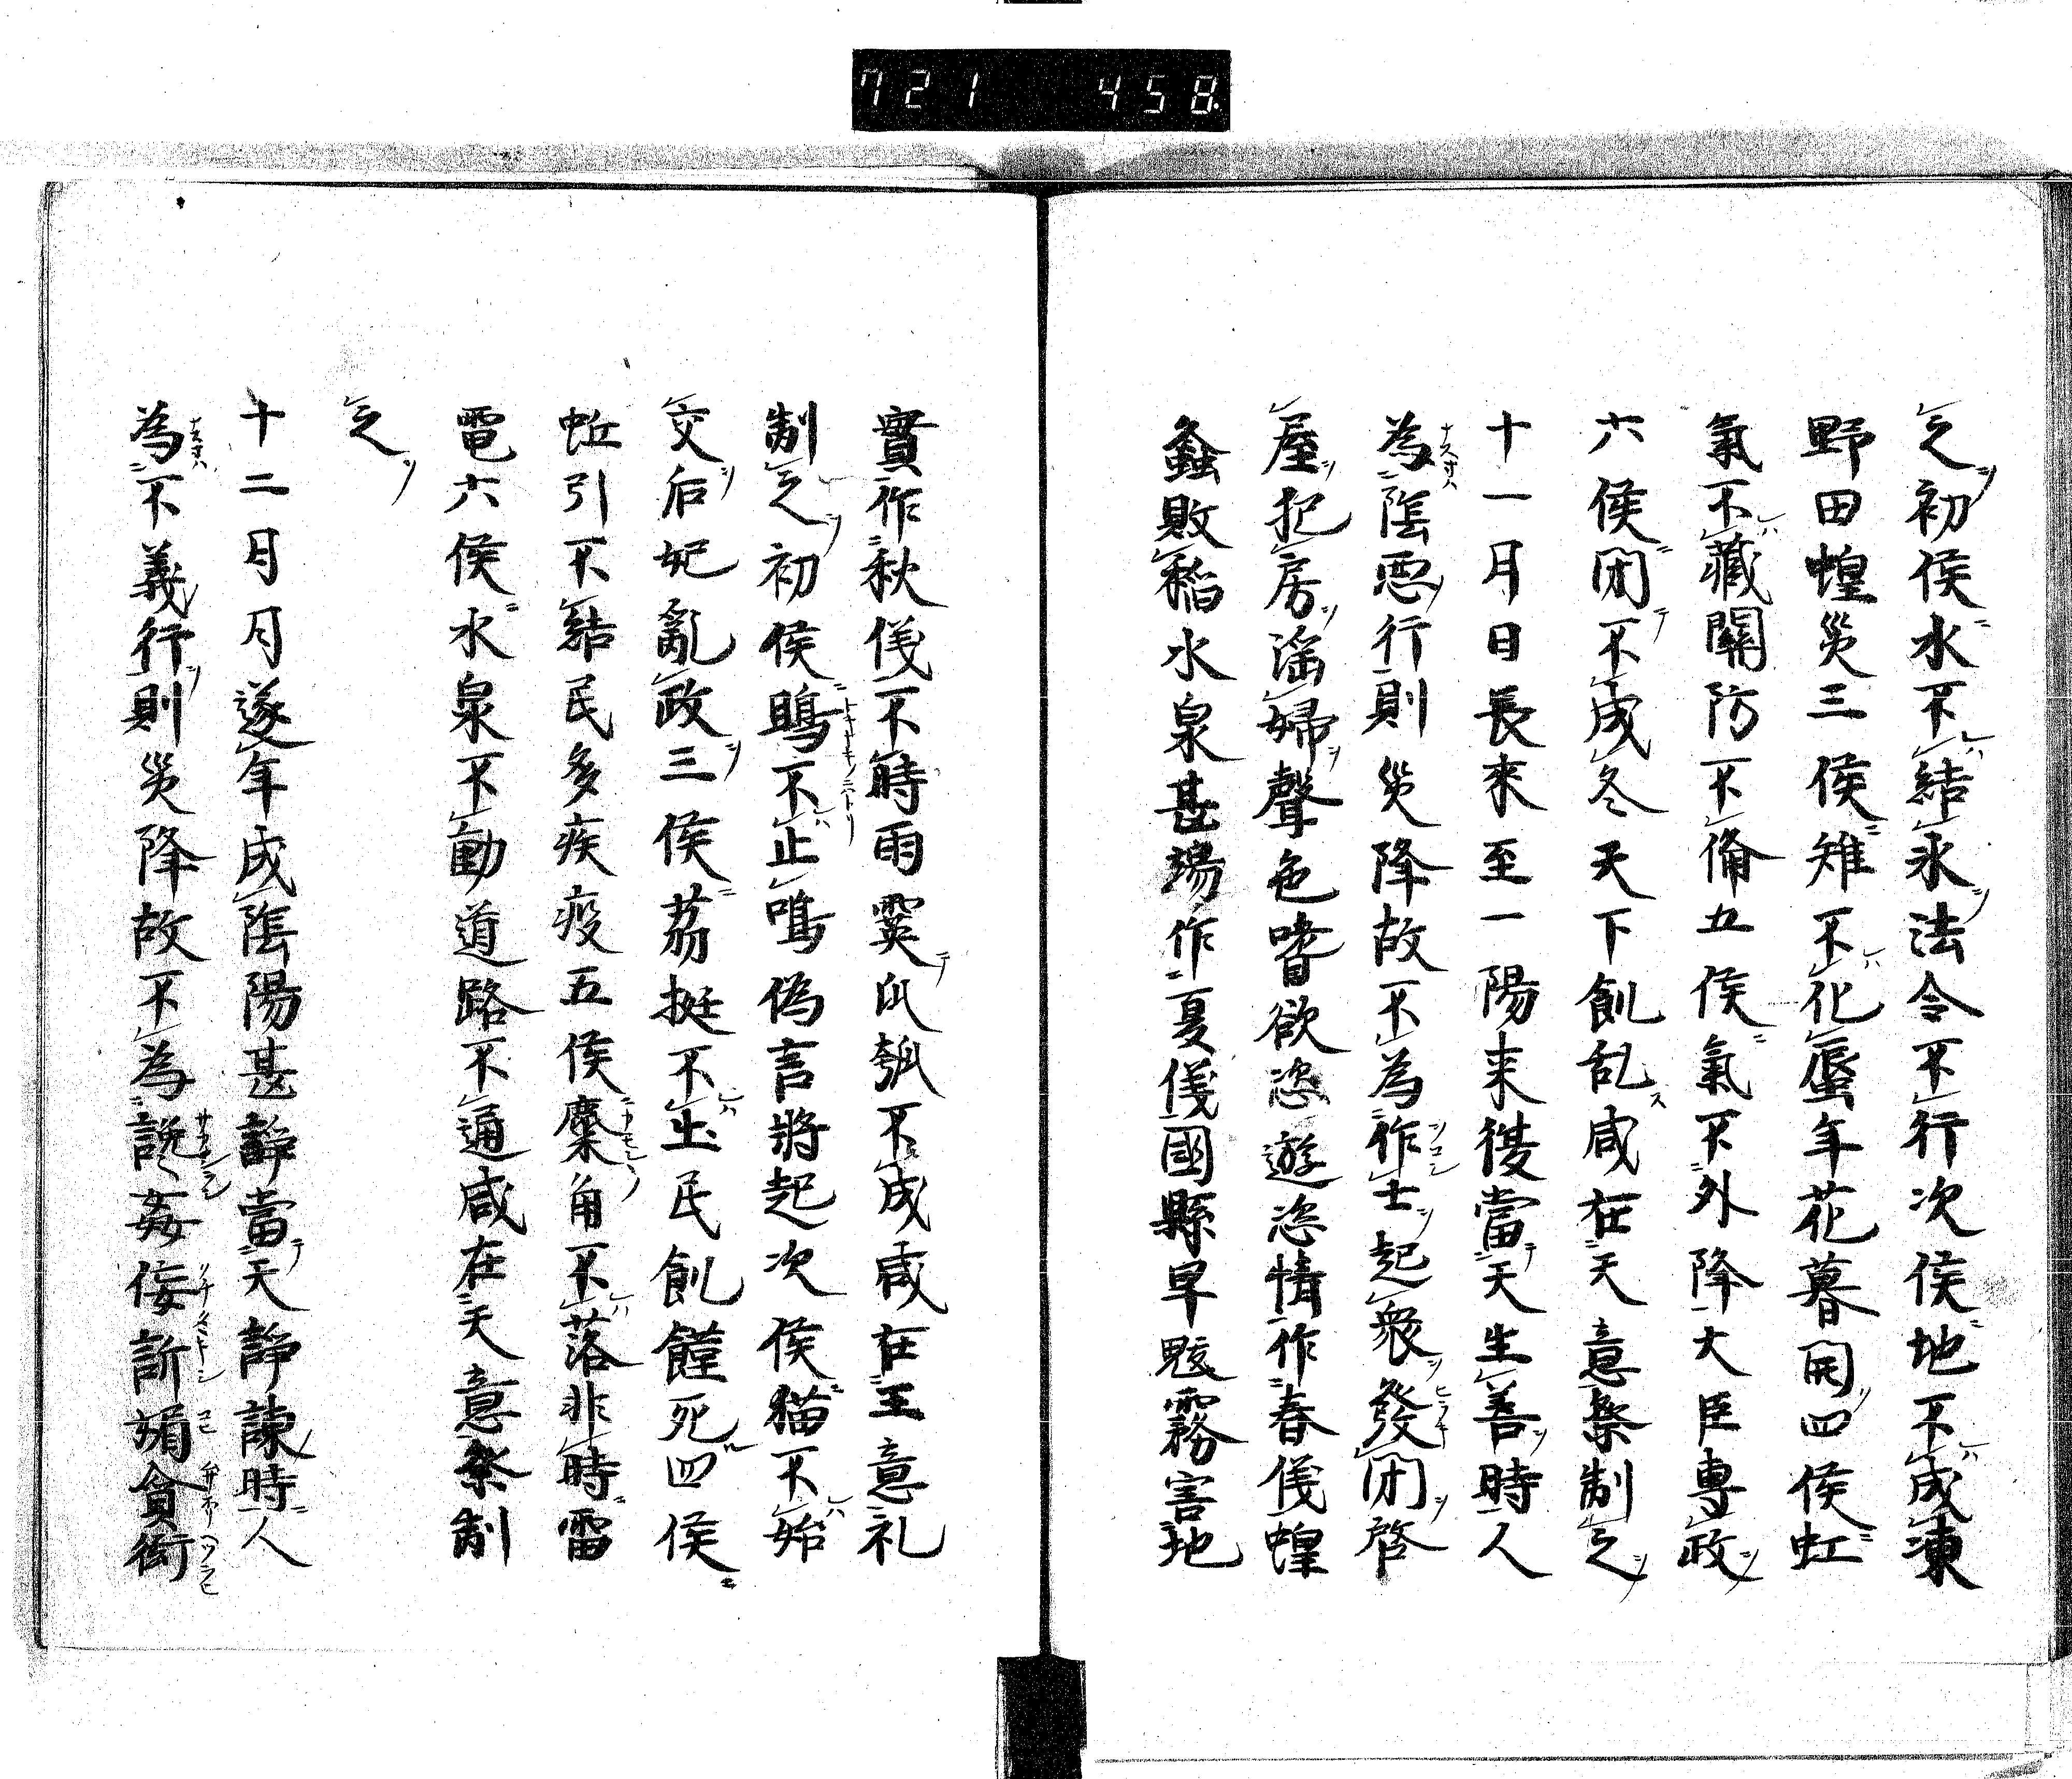 721 458
之初侯水不結氷法令不行次侯地不成凍
野田蝗災三侯雉不化蜃年花暮開四侯虹
氣不藏關防不備五侯氣不外降大臣專政
六侯閉不成冬天下飢乱咸在天意祭制之
十一月日長來至一陽来復當天生善時人
為陰惡行則災降故不為作士起衆發閉啓
屋犯房滛婦聲色嗜欲恣遊恣情作春侯蝗
蟲敗稲水泉甚竭作夏侯國縣旱魃霧害地
實作秋侯不時雨霙瓜瓠不成咸在王意礼
制之初侯鶡不止鳴偽言將起次侯猫不始
交后妃亂政三侯茘挺不出民飢饉死四侯
蚯引不結民多疾疫五侯麋角不落非時雷
電六侯水泉不動道路不通咸在天意祭制
之
十二月月遂年成陰陽甚諍當天諍諫時人
為不義行則災降故不為讒姦侫訢媚貪衒